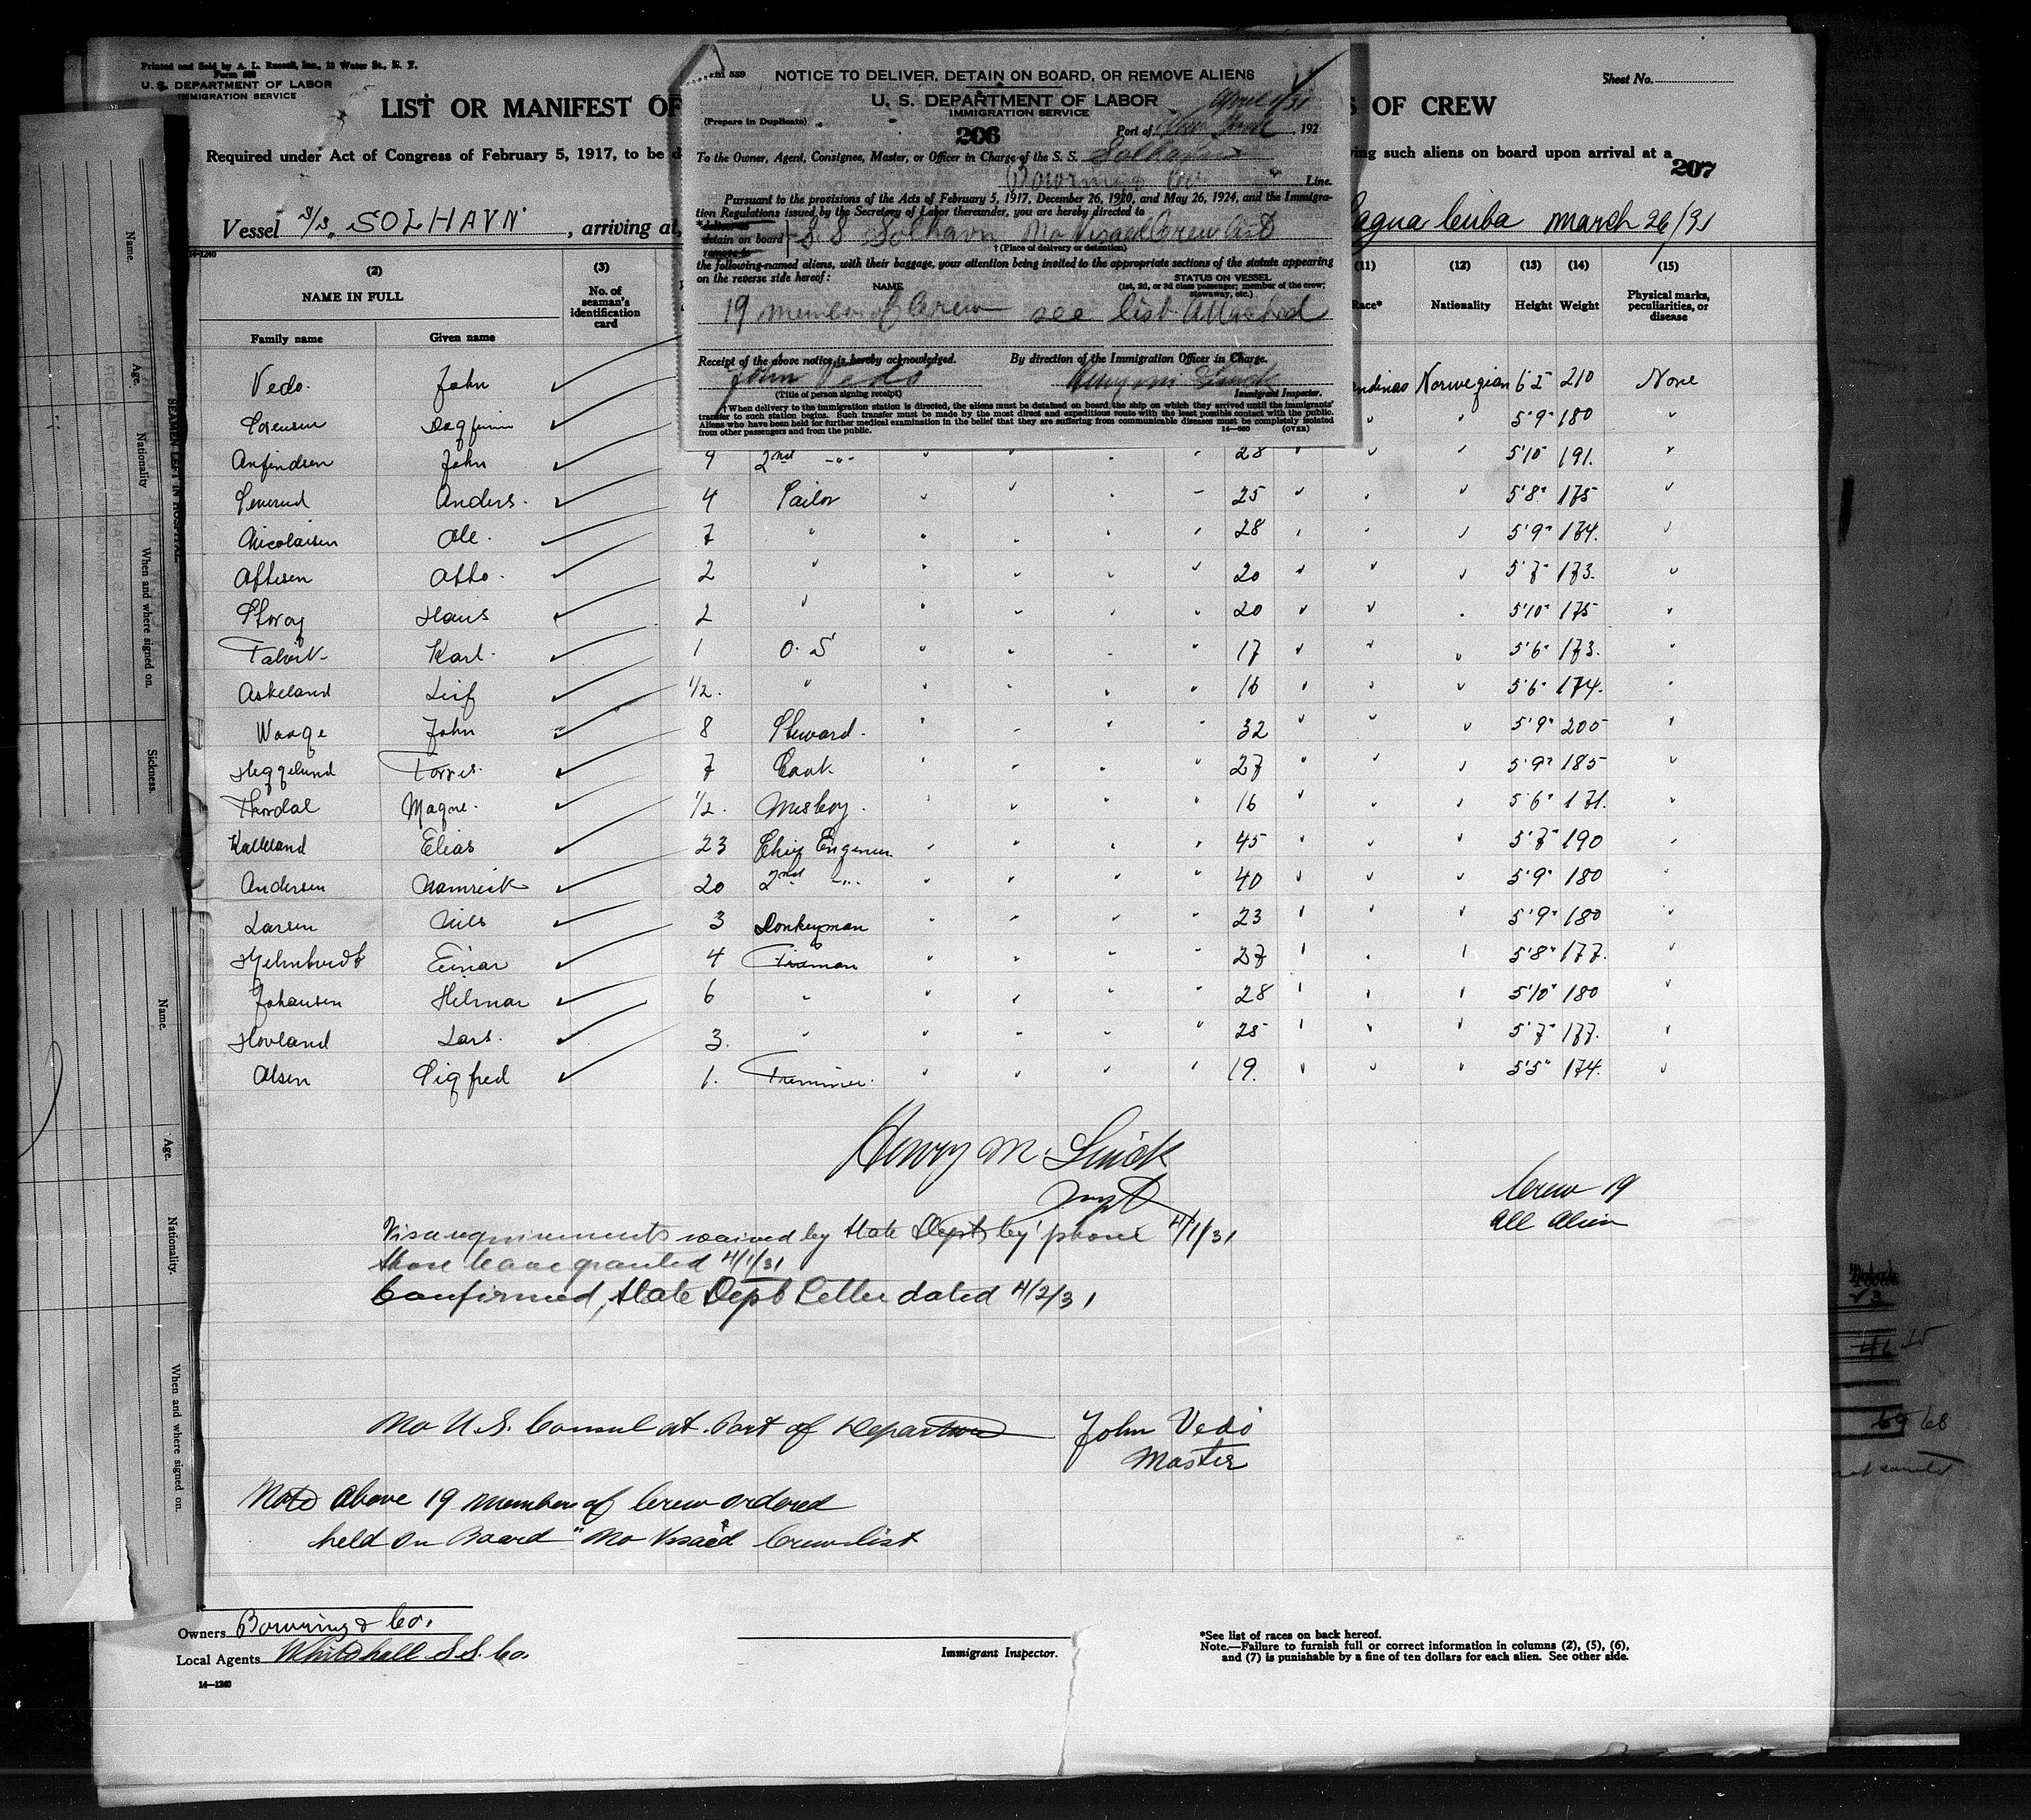 Printed and Sold by A. L. Russell, Inc., 12 Water St., N. Y.
U. S. DEPARTMENT OF LABOR
IMMIGRATION SERVICE
LIST OR MANIFEST OF
S OF CREW
Sheet No.
Required under Act of Congress of February 5, 1917, to be d
ving such aliens on board upon arrival at a
207
Vessel S/S. SOLHAVN, arriving at
Sagua Cuba March 26/31
14-1240
NOTICE TO DELIVER, DETAIN ON BOARD, OR REMOVE ALIENS
U. S. DEPARTMENT OF LABOR
IMMIGRATION SERVICE
April 1/31
(Prepare in Duplicate)
206
Port of New York, 192
To the Owner, Agent, Consignee, Master, or Officer in Charge of the S. S. Solhavn
Bowring & Co Line.
Pursuant to the provisions of the Acts of February 5, 1917, December 26, 1920, and May 26, 1924, and the Immigra-
tion Regulations issued by the Secretary of Labor thereunder, you are hereby directed to
detain on board S S Solhavn No Visaed Crew list
† (Place of delivery or detention)
the following-named aliens, with their baggage, your attention being invited to the appropriate sections of the statute appearing
on the reverse side hereof:
NAME
STATUS ON VESSEL
(1st, 2d, or 3d class passenger; member of the crew;
stowaway, etc.)
19 member of Crew see list Attached
Receipt of the above notice is hereby acknowledged.
By direction of the Immigration Officer in Charge.
John Vedo
Henry M Smick
(Title of person signing receipt)
Immigrant Inspector.
† When delivery to the immigration station is directed, the aliens must be detained on board the ship on which they arrived until the immigrants'
transfer to such station begins. Such transfer must be made by the most direct and expeditious route with the least possible contact with the public.
Aliens who have been held for further medical examination in the belief that they are suffering from communicable diseases must be completely isolated
from other passengers and from the public.
(OVER)
(2) (3) (11) (12) (13) (14) (15)
NAME IN FULL
No. of seaman's identification card
Race* Nationality Height Weight Physical marks, peculiarities, or disease
Family name Given name
Vedo. John Norwegian 6'2" 210 None
Sorensen Dagfinn 5'9" 180
Anfindsen John 9 2nd 28 5'10" 191.
Severud Anders. 4 Sailor 25 5'8" 175
Nicolaisen Ole. 7 " 28 5'9" 184.
Aftesen Otto. 2 " 20 5'7" 173.
Storoy Hans 2 " 20 5'10" 175
Karl. 1 O. S 17 5'6" 173.
Askeland Leif 1/2. " 16 5'6" 174.
Waage John 8 Steward. 32 5'9" 200
Heggelund Torres. 7 Cook. 27 5'9" 185
Thordal Magne. 1/2. Messboy. 16 5'6" 171.
Kalleland Elias 23 Chief Engineer. 45 5'7" 190
Andersen 20 2nd 40 5'9" 180
Larsen Nils 3 Donkeyman 23 5'9" 180
Einar 4 Fireman 27 5'8" 177.
Johansen Hilmar 6 " 28 5'10" 180
Hovland Lars. 3. " 25 5'7" 177.
Olsen Sigfred 1. Trimmer. 19. 5'5" 174.
Henry M. Smick
Insp
Crew 19
All Alien
Visa requirements waived by State Dept by 'phone 4/1/31
Shore leave granted 4/1/31
Confirmed, State Dept Letter dated 4/2/31
No U.S. Consul at Port of Departure
John Vedo
Master
Note Above 19 members of Crew ordered
held on Board "No Visaed Crew list
Owners Bowring & Co.
Local Agents Whitehall S.S. Co.
14—1240
Immigrant Inspector.
*See list of races on back hereof.
Note.—Failure to furnish full or correct information in columns (2), (5), (6),
and (7) is punishable by a fine of ten dollars for each alien. See other side.
SEAMEN LEFT IN HOSPITAL
Name. Age. Nationality When and where signed on. Sickness.
Name. Age. Nationality. When and where signed on.